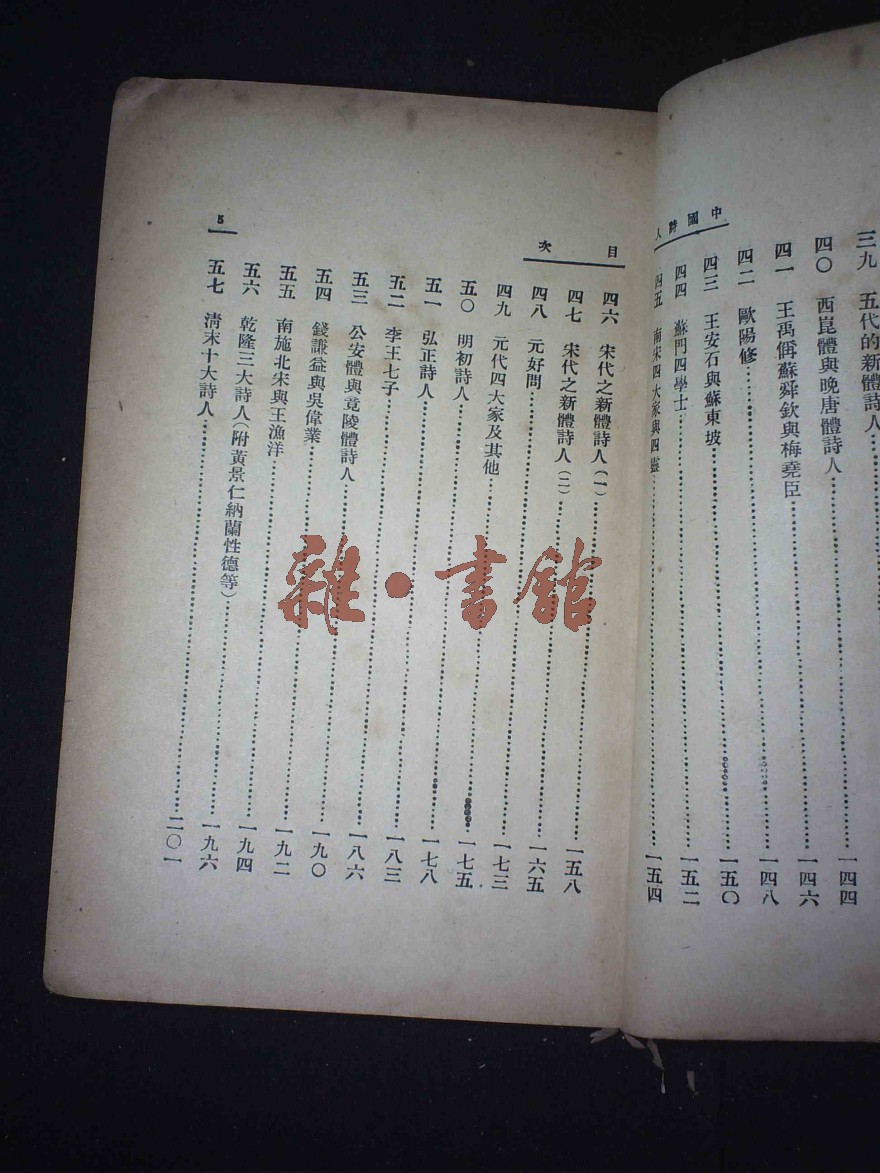 中國詩人
三九 五代的新體詩人
四〇 西崑體與晚唐體詩人 一四四
四一 王禹偁蘇舜欽與梅堯臣 一四六
四二 歐陽修 一四八
四三 王安石與蘇東坡 一五〇
四四 蘇門四學士 一五二
四五 南宋四大家與四靈 一五四
目次
四六 宋代之新體詩人(一) 一五八
四七 宋代之新體詩人(二) 一六五
四八 元好問 一七三
四九 元代四大家及其他 一七五
五〇 明初詩人 一七八
五一 弘正詩人 一八三
五二 李王七子 一八六
五三 公安體與竟陵體詩人 一九〇
五四 錢謙益與吳偉業 一九二
五五 南施北宋與王漁洋 一九四
五六 乾隆三大詩人(附黃景仁納蘭性德等) 一九六
五七 清末十大詩人 二〇一
5
雜·書館